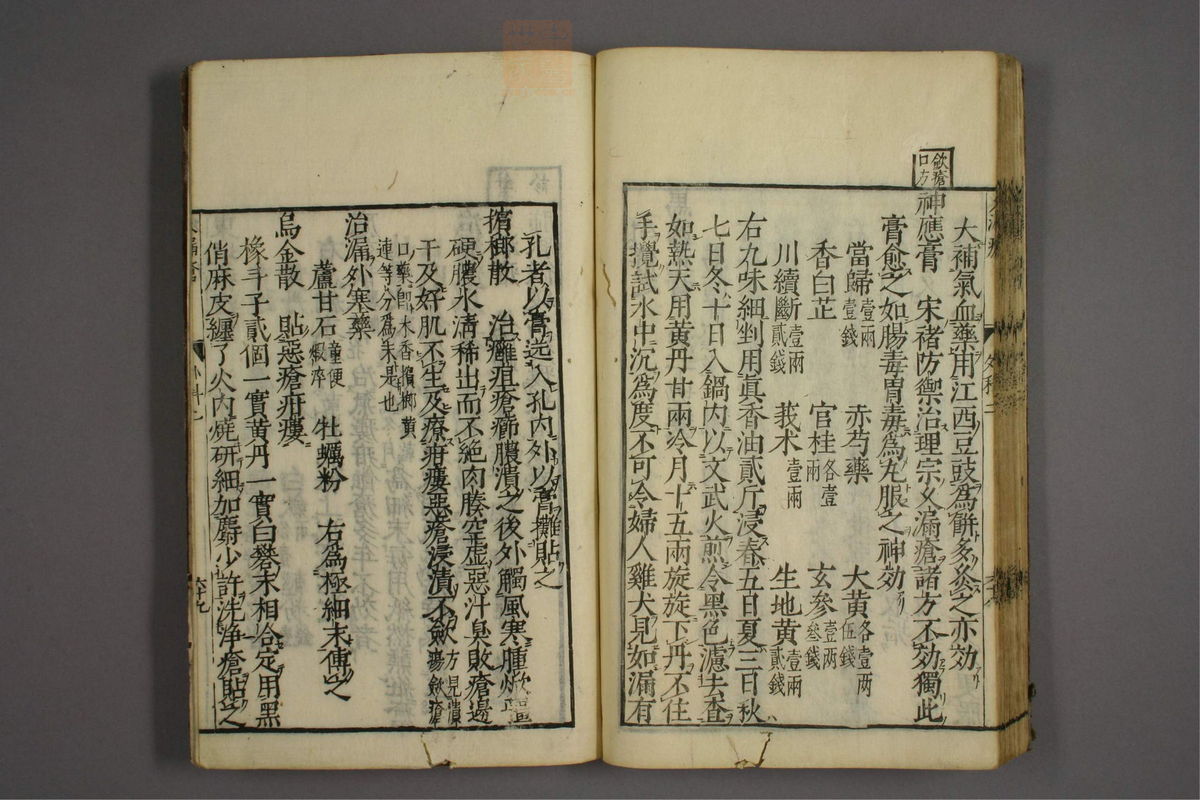 大補氣血藥用江西豆豉為餅多灸之亦効
歛瘡
口方
神應膏 宋褚防禦治理宗久漏瘡諸方不効獨此
膏愈之如腸毒胃毒為丸服之神効
當歸壹兩壹錢 赤芍藥 大黃各壹兩伍錢
香白芷 官桂各壹兩 玄參壹兩叁錢
川續斷壹兩貳錢 莪术壹兩 生地黃壹兩貳錢
右九味細剉用眞香油貳斤浸春五日夏三日秋
七日冬十日入鍋內以文武火煎令黑色濾去查
如熱天用黃丹廿兩冷月十五兩旋旋下丹不住
手攪試水中沉為度不可令婦人雞犬見如漏有
孔者以膏送入孔內外以膏攤貼之
檳榔散 治癰疽瘡癤膿潰之後外觸風寒腫焮
硬膿水清稀出而不絕肉腠空虛惡汁臭敗瘡邊
干及好肌不生及療疳瘻惡瘡浸漬不歛方見潰瘍歛瘡
口藥卽木香檳榔黃
連等分為末是也
治漏外寒藥
蘆甘石童便煅淬 牡蠣粉 右為極細末傅之
烏金散 貼惡瘡疳瘻
橡斗子貳個一實黃丹一實白礬末相合定用黑
俏麻皮纏了火內燒研細加麝少許洗淨瘡貼之